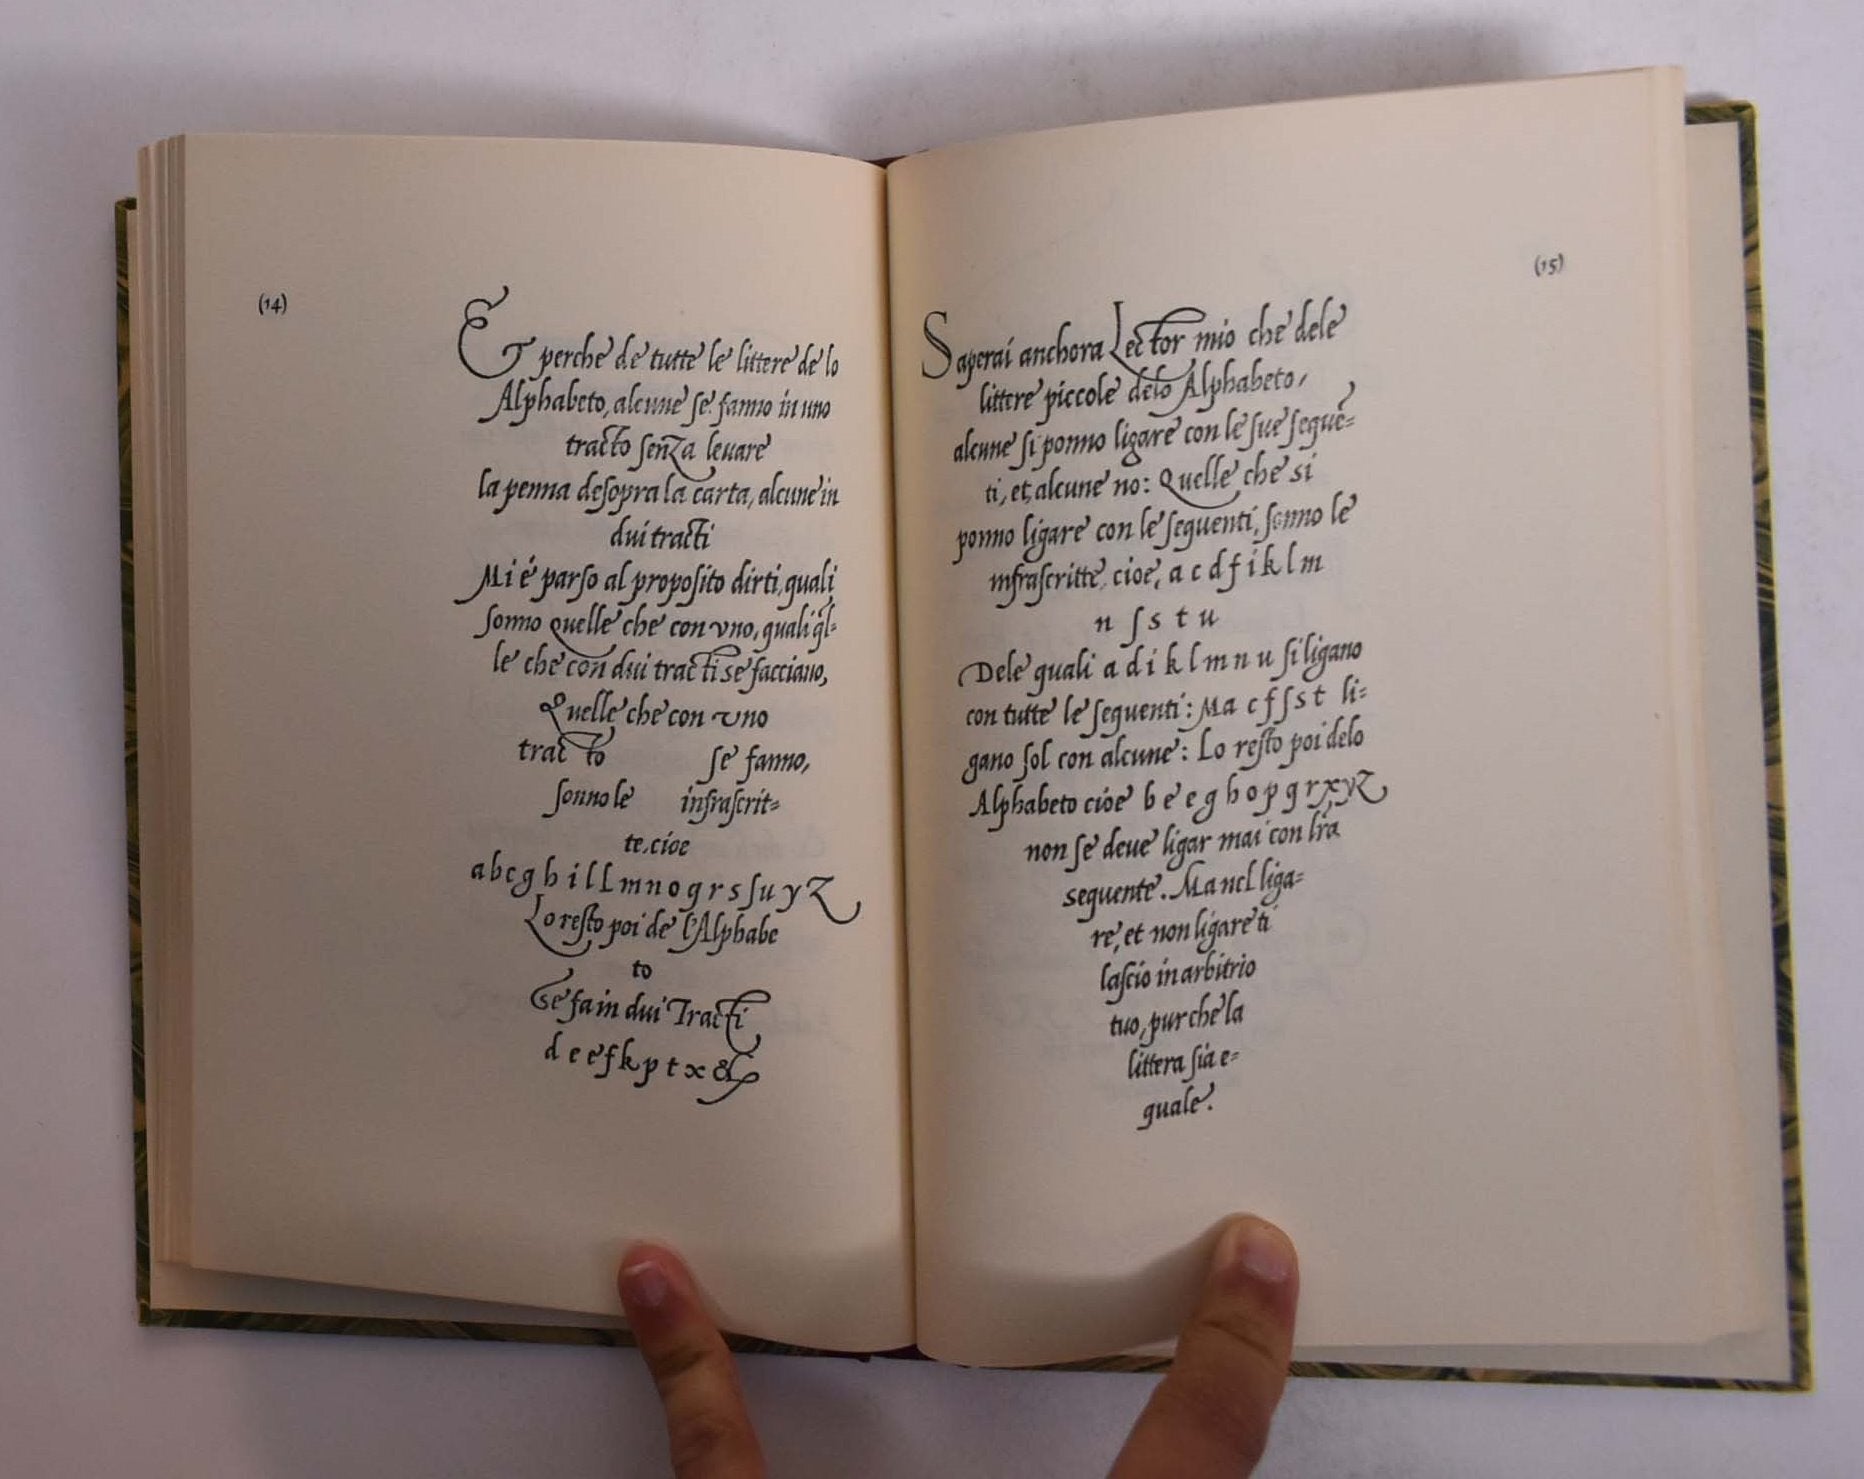 (14)
Et perche de tutte le littere de lo
Alphabeto, alcune se fanno in uno
tracto senza leuare
la penna desopra la carta, alcune in
dui tracti
Mi é parſo al propoſito dirti, quali
ſonno quelle che con vno, quali q̃l-
le che con dui tracti se facciano,
Quelle che con vno
tracto ſe fanno,
ſonno le infraſcrit=
te, cioe
a b c g h i l l m n o q r s ſ u y z
Lo reſto poi de l'Alphabe
to
se fa in dui Tracti
d e e f k p t x &
(15)
Saperai anchora Lector mio che dele
littere piccole delo Alphabeto,
alcune ſi ponno ligare con le ſue ſeque͂=
ti, et alcune no: Quelle che si
ponno ligare con le ſequenti, ſonno le
infraſcritte, cioe, a c d f i k l m
n ſ s t u
Dele quali a d i k l m n u ſi ligano
con tutte le ſequenti: Ma c f ſ s t li=
gano ſol con alcune: Lo reſto poi delo
Alphabeto cioe b e e g h o p q r x y z
non ſe deue ligar mai con lr̃a
sequente. Ma nel liga=
re, et non ligare ti
laſcio in arbitrio
tuo, pur che la
littera ſia e=
quale.